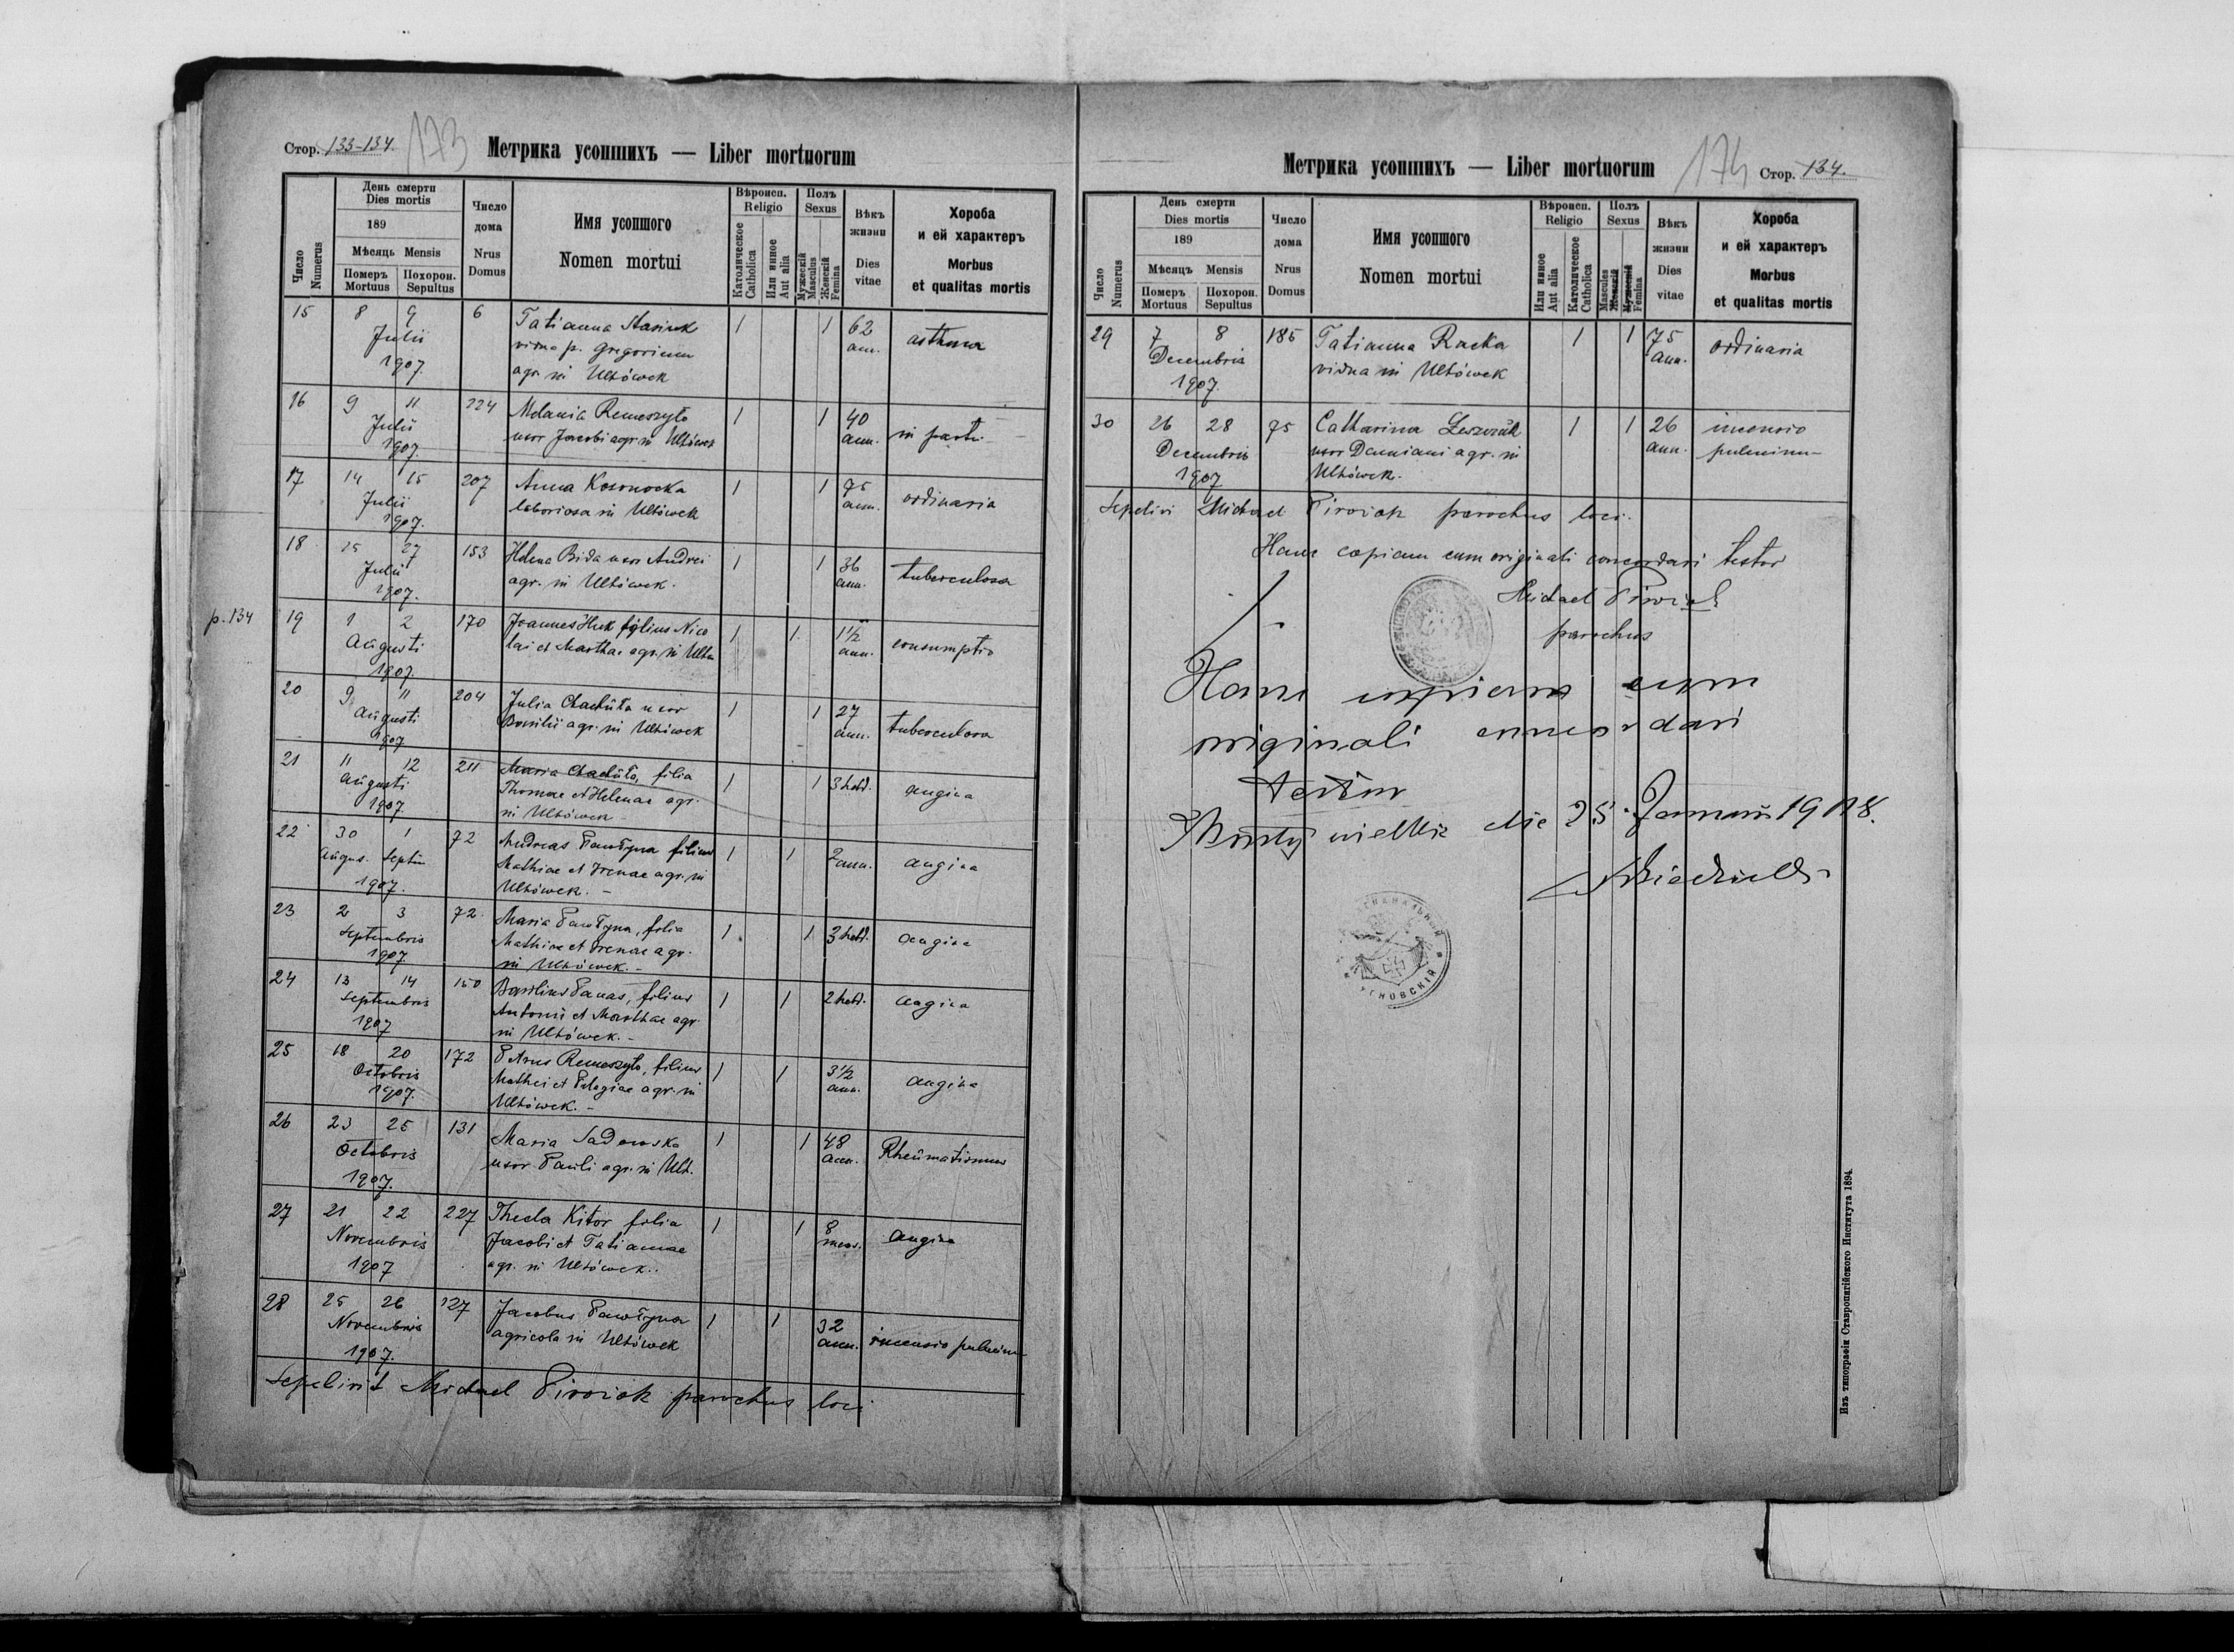 Стор. 133-134.
173
Метрика усопшихъ — Liber mortuorum
Число Numerus
День смерти
Dies mortis
189
Мѣсяць Mensis
Померъ Mortuus
Похорон. Sepultus
Число дома
Nrus Domus
Имя усопшого
Nomen mortui
Вѣроисп.
Religio
Католическое Catholica
Или инное Aut alia
Полъ
Sexus
Мужескій Masculus
Женскій Femina
Вѣкъ жизни
Dies vitae
Хороба
и ей характеръ
Morbus
et qualitas mortis
15 8 9 Julii 1907. 6
Tatianna Stasiuk
vidua p. Gregorium
agr. in Uhtówek
1 1 62 ann. asthma
16 9 11 Julii 1907. 224
Melania Remeszyło
uxor Jacobi agr. in Uhtówek
1 1 40 ann. in partu
17 14 15 Julii 1907. 207
Anna
laboriosa in Uhtówek
1 1 75 ann. ordinaria
18 25 27 Julii 1907. 153
Helena Bida uxor Andrei
agr. in Uhtówek.
1 1 36 ann. tuberculosa
p. 134
19 1 2 Augusti 1907. 170
Joannes Huk filius Nico
lai et Marthae agr. in Uhtu
1 1 1 1/2 ann. consumptio
20 9 11 Augusti 1907 204
Julia Chachuła uxor
Basilii agr. in Uhtówek
1 1 27 ann. tuberculosa
21 11 12 Augusti 1907 211
Maria Chachuła, filia
Thomae et Helenae agr.
in Uhtówek
1 1 3 hebd. angina
22 30 1 Augus. Septem 1907. 72
Andreas Pawłyna filius
Mathiae et Irenae agr. in
Uhtówek. –
1 1 2 ann. angina
23 2 3 Septembris 1907 72
Maria Pawłyna, filia
Mathiae et Irenae agr.
in Uhtówek. –
1 1 3 hebd. angina
24 13 14 Septembris 1907 150
Basilius Panas, filius
Antonii et Marthae agr.
in Uhtówek. –
1 1 2 hebd. angina
25 18 20 Octobris 1907. 172
Petrus Remeszyło, filius
Mathei et Pelagiae agr. in
Uhtówek. –
1 1 3 1/2 ann. angina
26 23 25 Octobris 1907. 131
Maria Sadowska
uxor Pauli agr. in Uht.
1 1 48 ann. Rheumatismus
27 21 22 Novembris 1907 227
Thecla Kitor filia
Jacobi et Tatiannae
agr. in Uhtówek..
1 1 8 mens. angina
28 25 26 Novembris 1907. 127
Jacobus Pawłyna
agricola in Uhtówek
1 1 32 ann. incensio pulmin–
Sepelivit Michael Pirożok parochus loci
Метрика усопшихъ — Liber mortuorum
174
Стор. 134.
Число Numerus
День смерти
Dies mortis
189
Мѣсяць Mensis
Померъ Mortuus
Похорон. Sepultus
Число дома
Nrus Domus
Имя усопшого
Nomen mortui
Вѣроисп.
Religio
Или инное Aut alia
Католическое Catholica
Полъ
Sexus
Masculus Женскій
Мужескій Femina
Вѣкъ жизни
Dies vitae
Хороба
и ей характеръ
Morbus
et qualitas mortis
29 7 8 Decembris 1907. 185
Tatianna Racka
vidua in Uhtówek
1 1 75 ann. ordinaria
30 26 28 Decembris 1907 75
Catharina
uxor Damiani agr. in
Uhtówek.
1 1 26 ann. incensio pulminu–
Sepelivi Michael Pirożok parochus loci.
Hanc copiam cum originali concordari testor
Michael Pirożok
parochus
Hanc copiam cum
originali concordari
testor
die 25 Januarii 1908.
Изъ типографіи Ставропигійского Института 1894